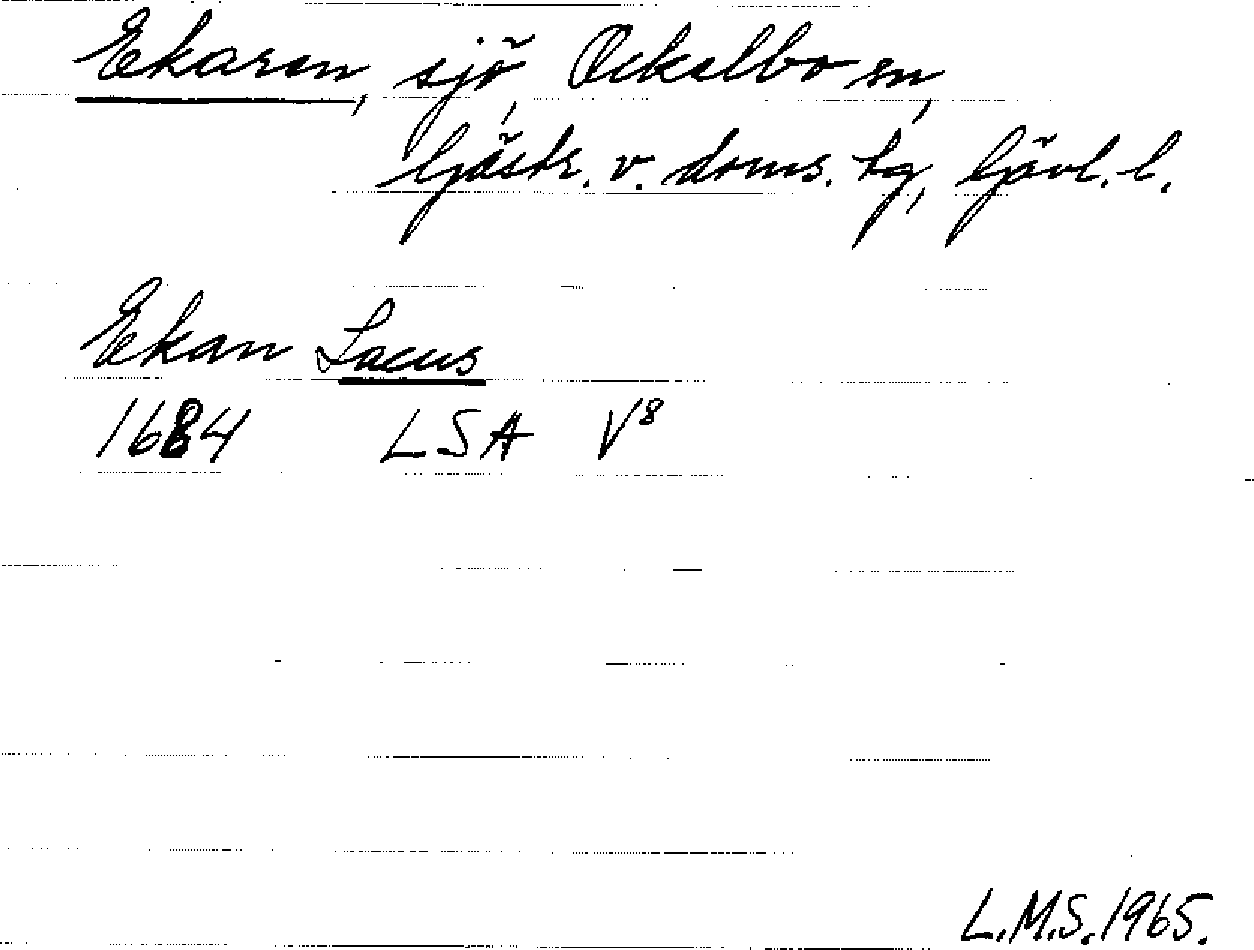 Ekaren, sjö, Ockelbo sn,
Gästr. v. doms. tg, Gävl. l.
Ekan Lacus
1684 LSA V8
L.M.S. 1965.